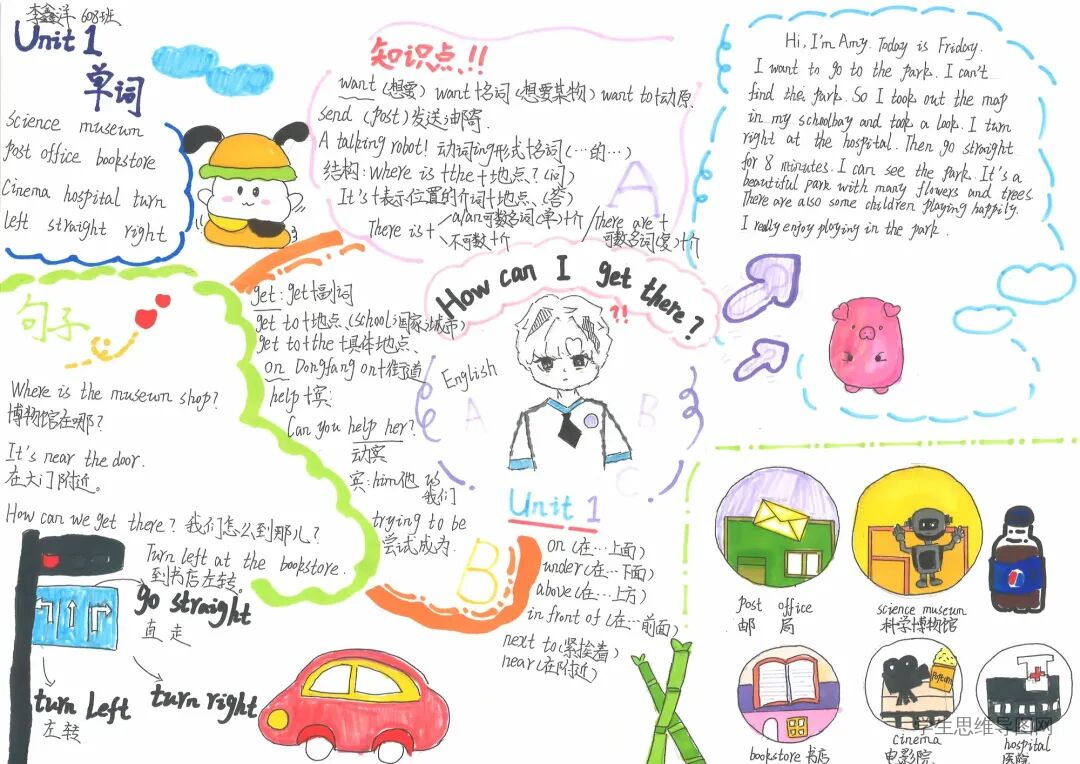 李鑫洋 608班
Unit 1
单词
science museum
post office bookstore
Cinema hospital turn
left straight right
知识点!!
want (想要) want+名词 (想要某物) want to+动原
send (post) 发送;邮寄.
A talking robot! 动词ing形式+名词 (…的…)
结构: where is +the+地点? (问)
It's+表示位置的介词+地点. (答)
There is + a/an 可数名词(单)+介 / There are +
不可数+介 可数名词(复)+介
A
Hi, I'm Amy. Today is Friday.
I want to go to the park. I can't
find the park. So I took out the map
in my schoolbay and took a look. I turn
right at the hospital. Then go straight
for 8 minutes. I can see the park. It's a
beautiful park with many flowers and trees.
There are also some children playing happily.
I really enjoy playing in the park.
句子
Where is the museum shop?
博物馆在哪?
It's near the door.
在大门附近。
How can we get there? 我们怎么到那儿?
Turn left at the bookstore.
到书店左转。
go straight
直走
turn left
左转
turn right
get: get+副词
get to+地点 (school;国家;城市)
get to+the+具体地点.
on Dongfang on+街道
help+宾:
Can you help her?
动宾
宾: him他 us
我们
trying to be
尝试成为.
B
How can I get there?
?!
English
A B
C
Unit 1
on (在…上面)
under (在…下面)
above (在…上方)
in front of (在…前面)
next to (紧挨着)
near (在附近)
post office
邮局
science museum
科学博物馆
bookstore 书店
cinema
电影院
hospital
医院
学生思维导图网